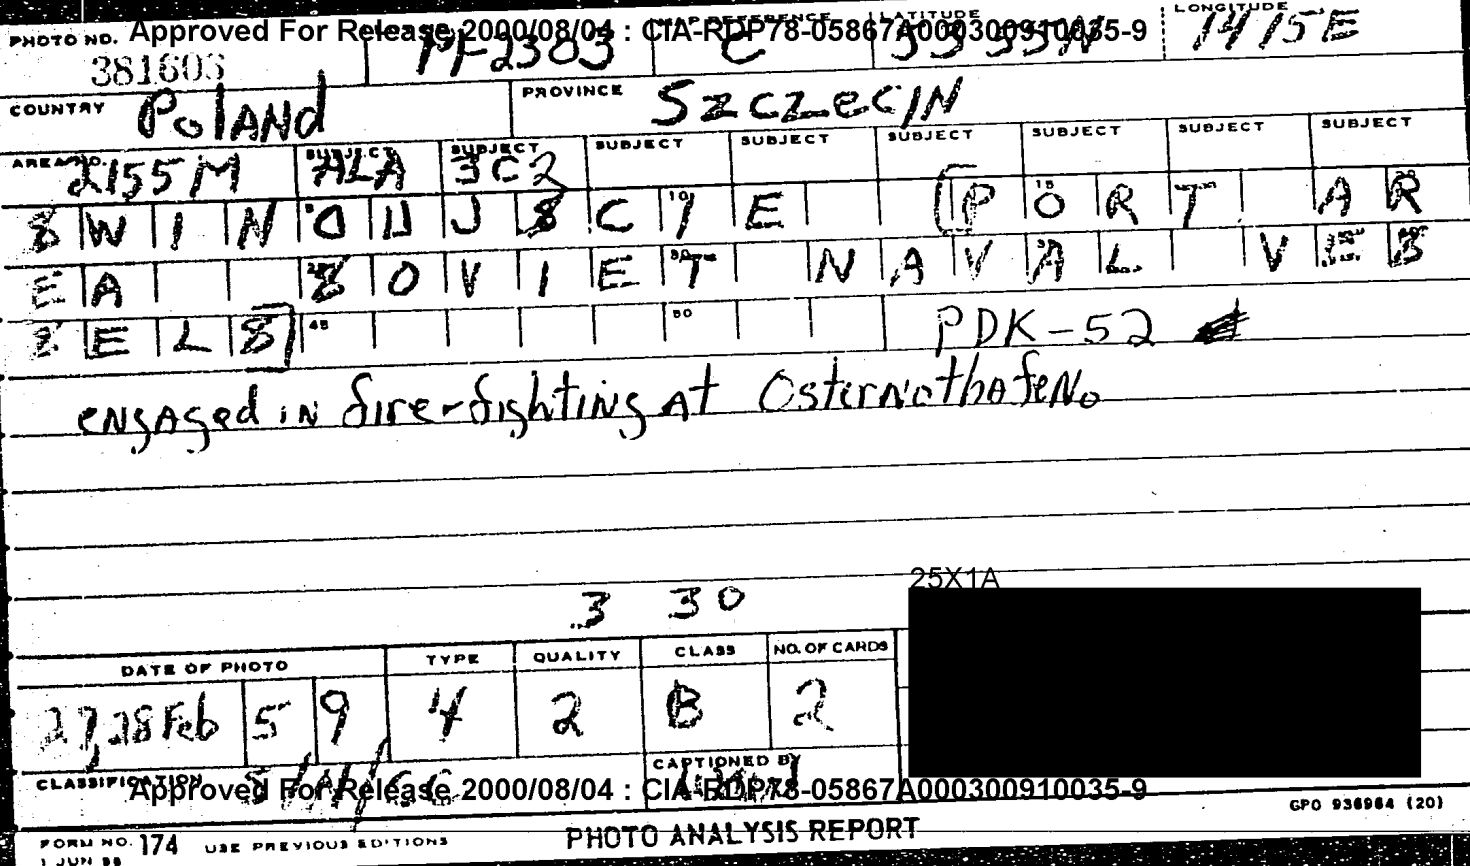 PHOTO NO. Approved For Release 2000/08/04 : CIA-RDP78-05867A000300910035-9
381603 PF2303 C 5355N LONGITUDE 1415E
COUNTRY Poland PROVINCE SzczeciN
AREA NO. 2155M SUBJECT ALA SUBJECT 3C2 SUBJECT SUBJECT SUBJECT SUBJECT SUBJECT SUBJECT
SWINOUJSCIE (PORT AR
EA SOVIET NAVAL VES
SELS) 45 50 PDK-52
ENgAged iN fire-fighting At OsternothafeN.
25X1A
3 30
DATE OF PHOTO TYPE QUALITY CLASS NO. OF CARDS
27,28 Feb 59 4 2 B 2
CLASSIFICATION CAPTIONED BY
Approved For Release 2000/08/04 : CIA-RDP78-05867A000300910035-9
GPO 936964 (20)
FORM NO. 174 USE PREVIOUS EDITIONS PHOTO ANALYSIS REPORT
1 JUN